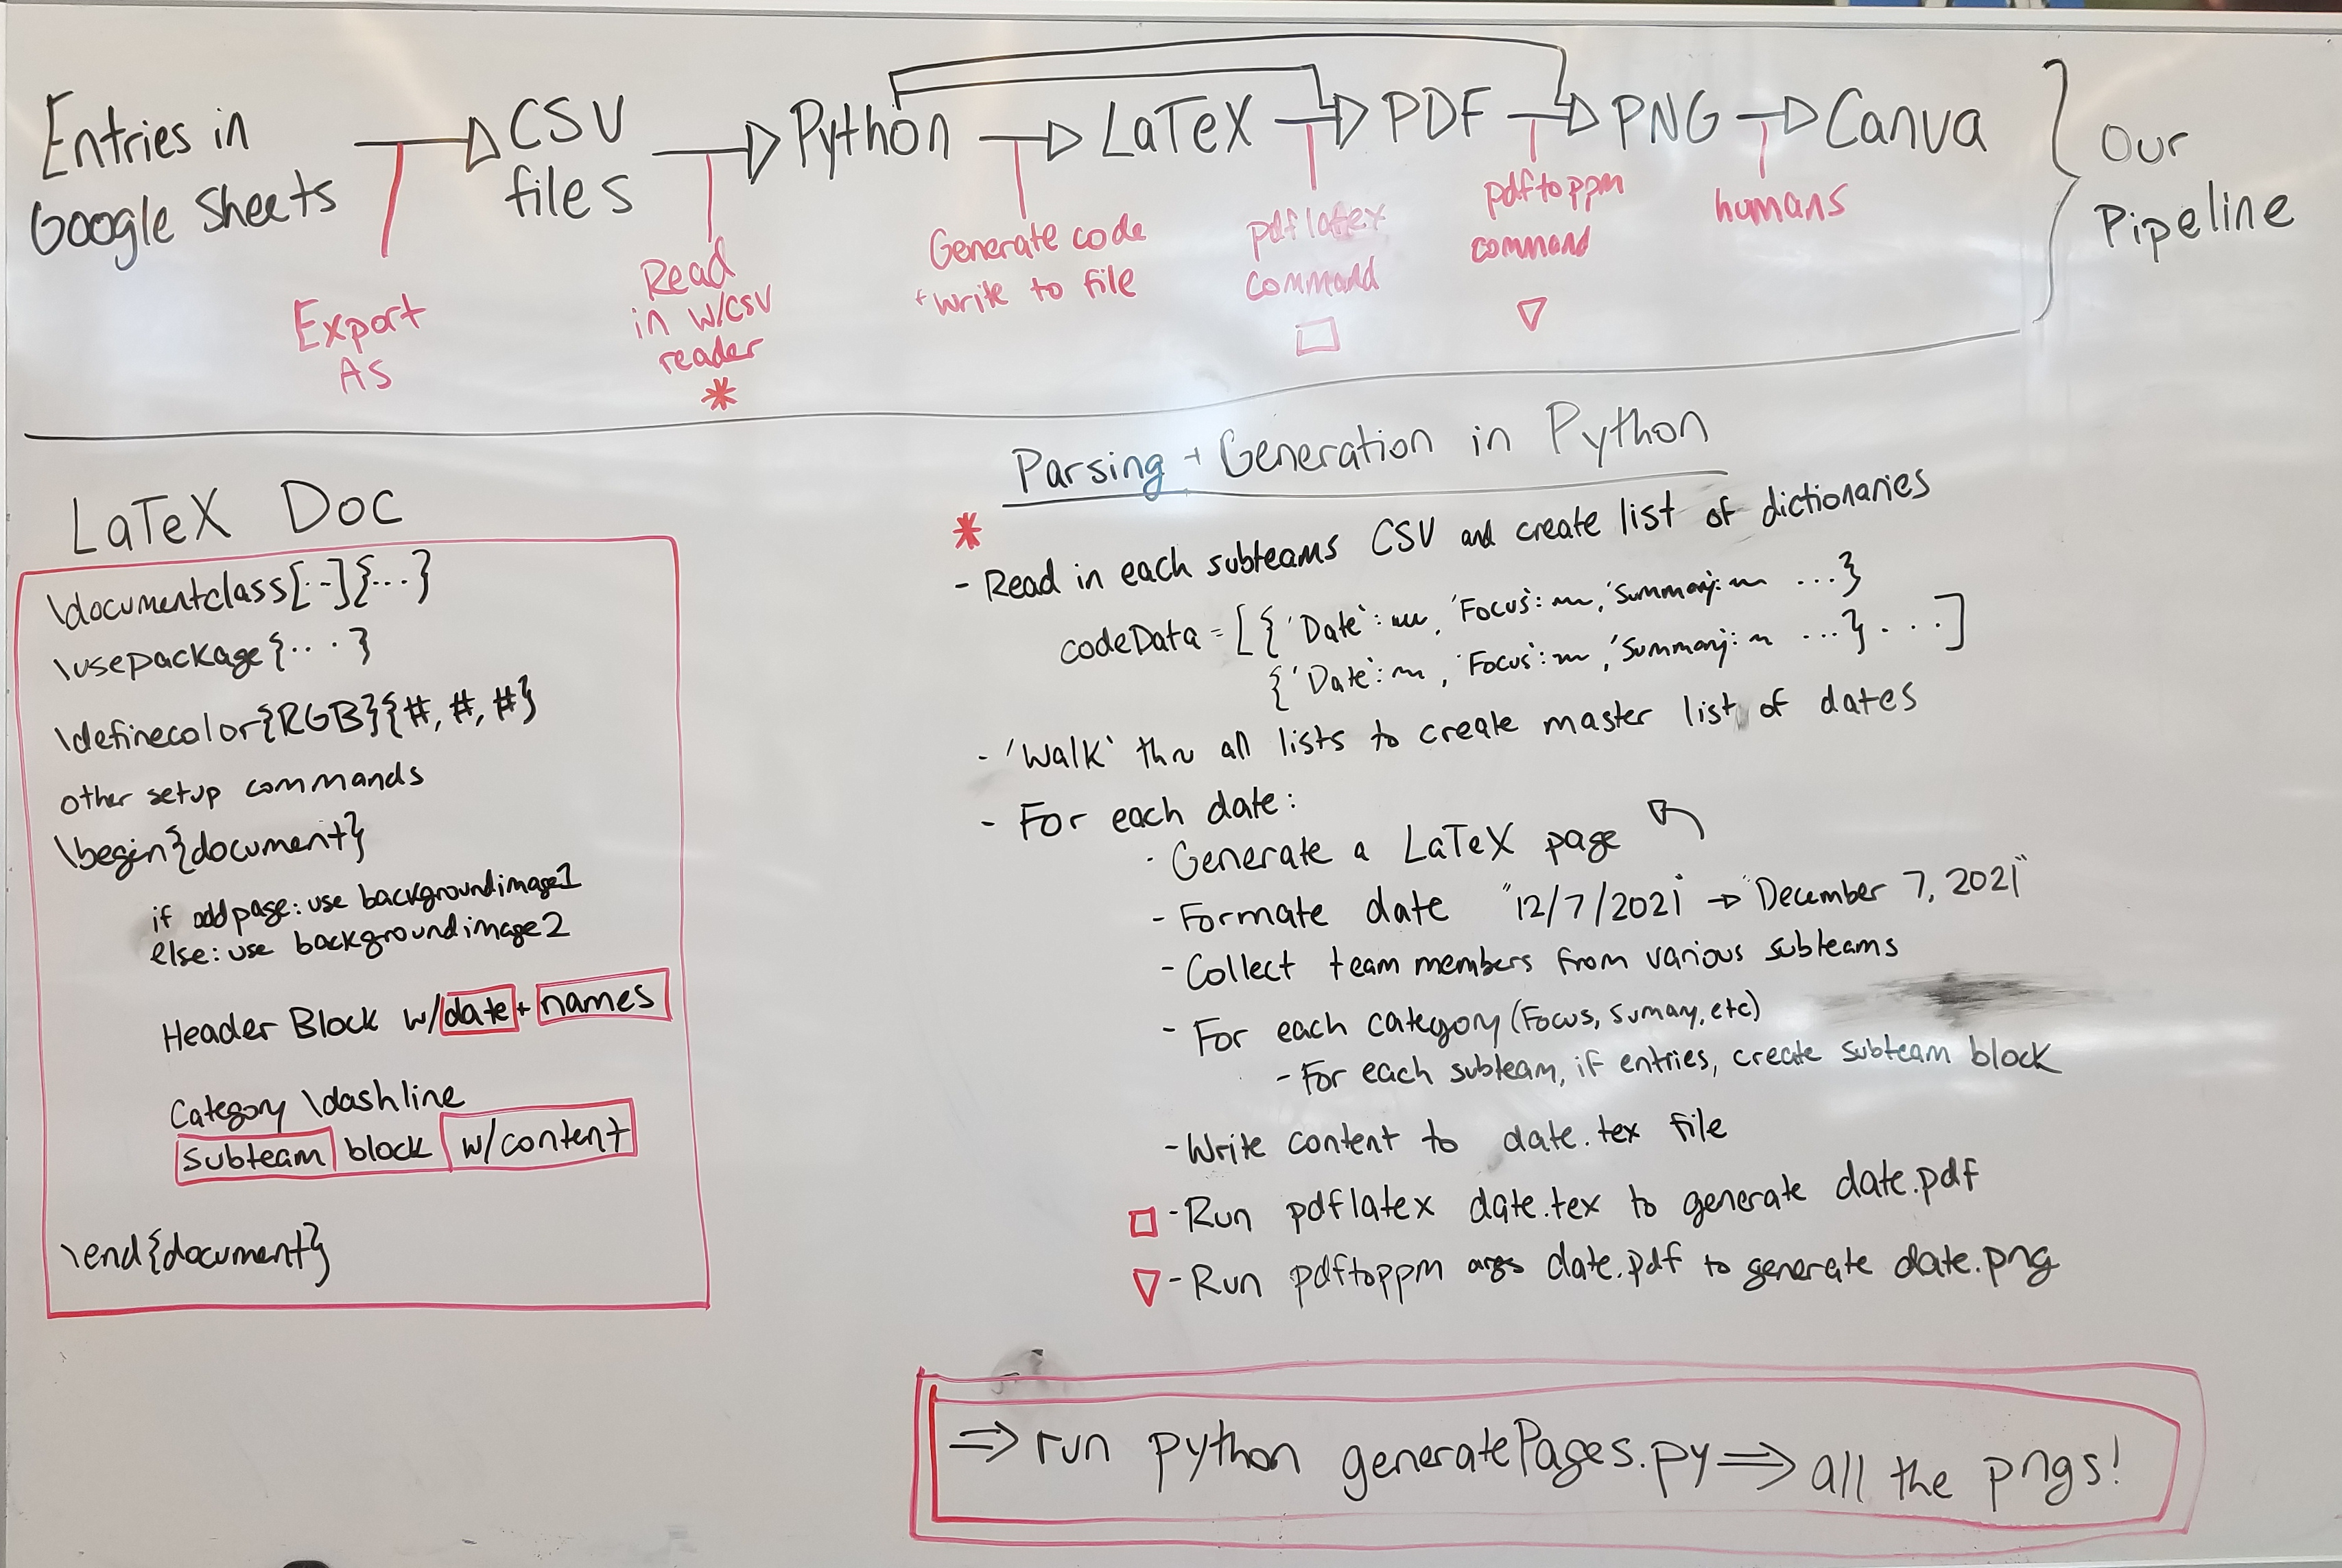 Entries in
Google Sheets
CSV
files
Python
LaTeX
PDF
PNG
Canva
Our
Pipeline
Export
As
Read
in w/CSV
reader
*
Generate code
+ write to file
pdflatex
command
pdftoppm
command
humans
LaTeX Doc
\documentclass[..]{...}
\usepackage{...}
\definecolor{RGB}{#, #, #}
other setup commands
\begin{document}
if odd page: use backgroundimage1
else: use backgroundimage2
Header Block w/ date + names
Category \dashline
subteam block w/content
\end{document}
Parsing + Generation in Python
*
- Read in each subteams CSV and create list of dictionaries
codeData = [{'Date': , 'Focus': , 'Summary': ...}
{'Date': , 'Focus': , 'Summary': ...} ...]
- 'Walk' thru all lists to create master list of dates
- For each date:
- Generate a LaTeX page
- Formate date "12/7/2021" → "December 7, 2021"
- Collect team members from various subteams
- For each category (Focus, Sumary, etc)
- For each subteam, if entries, create subteam block
- Write content to date.tex file
- Run pdflatex date.tex to generate date.pdf
- Run pdftoppm args date.pdf to generate date.png
⇒ run python generatePages.py ⇒ all the pngs!